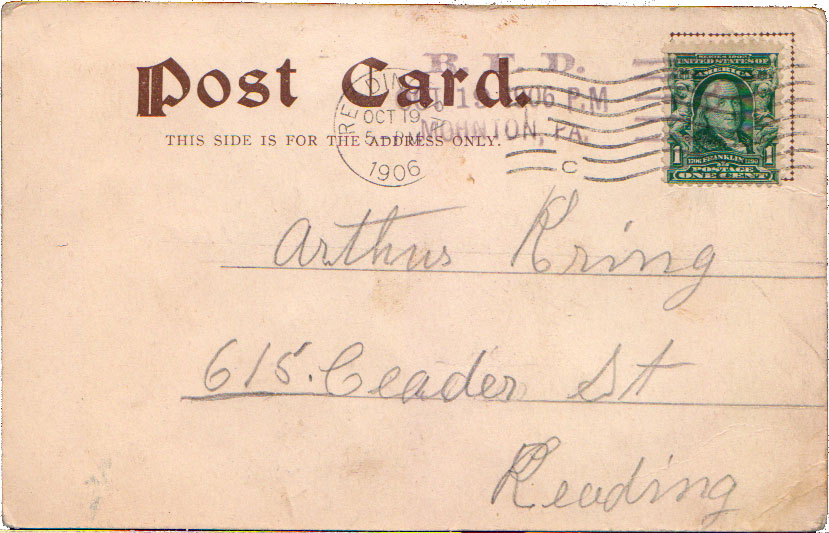 Post Card.
THIS SIDE IS FOR THE ADDRESS ONLY.
R. F. D.
OCT 19 1906 P.M
MOHNTON, PA.
READING
OCT 19
5 - PM
1906
C
SERIES 1902
UNITED STATES OF
AMERICA
1706 FRANKLIN 1790
1 1
POSTAGE
ONE CENT
Arthur Kring
615. Ceader St
Reading